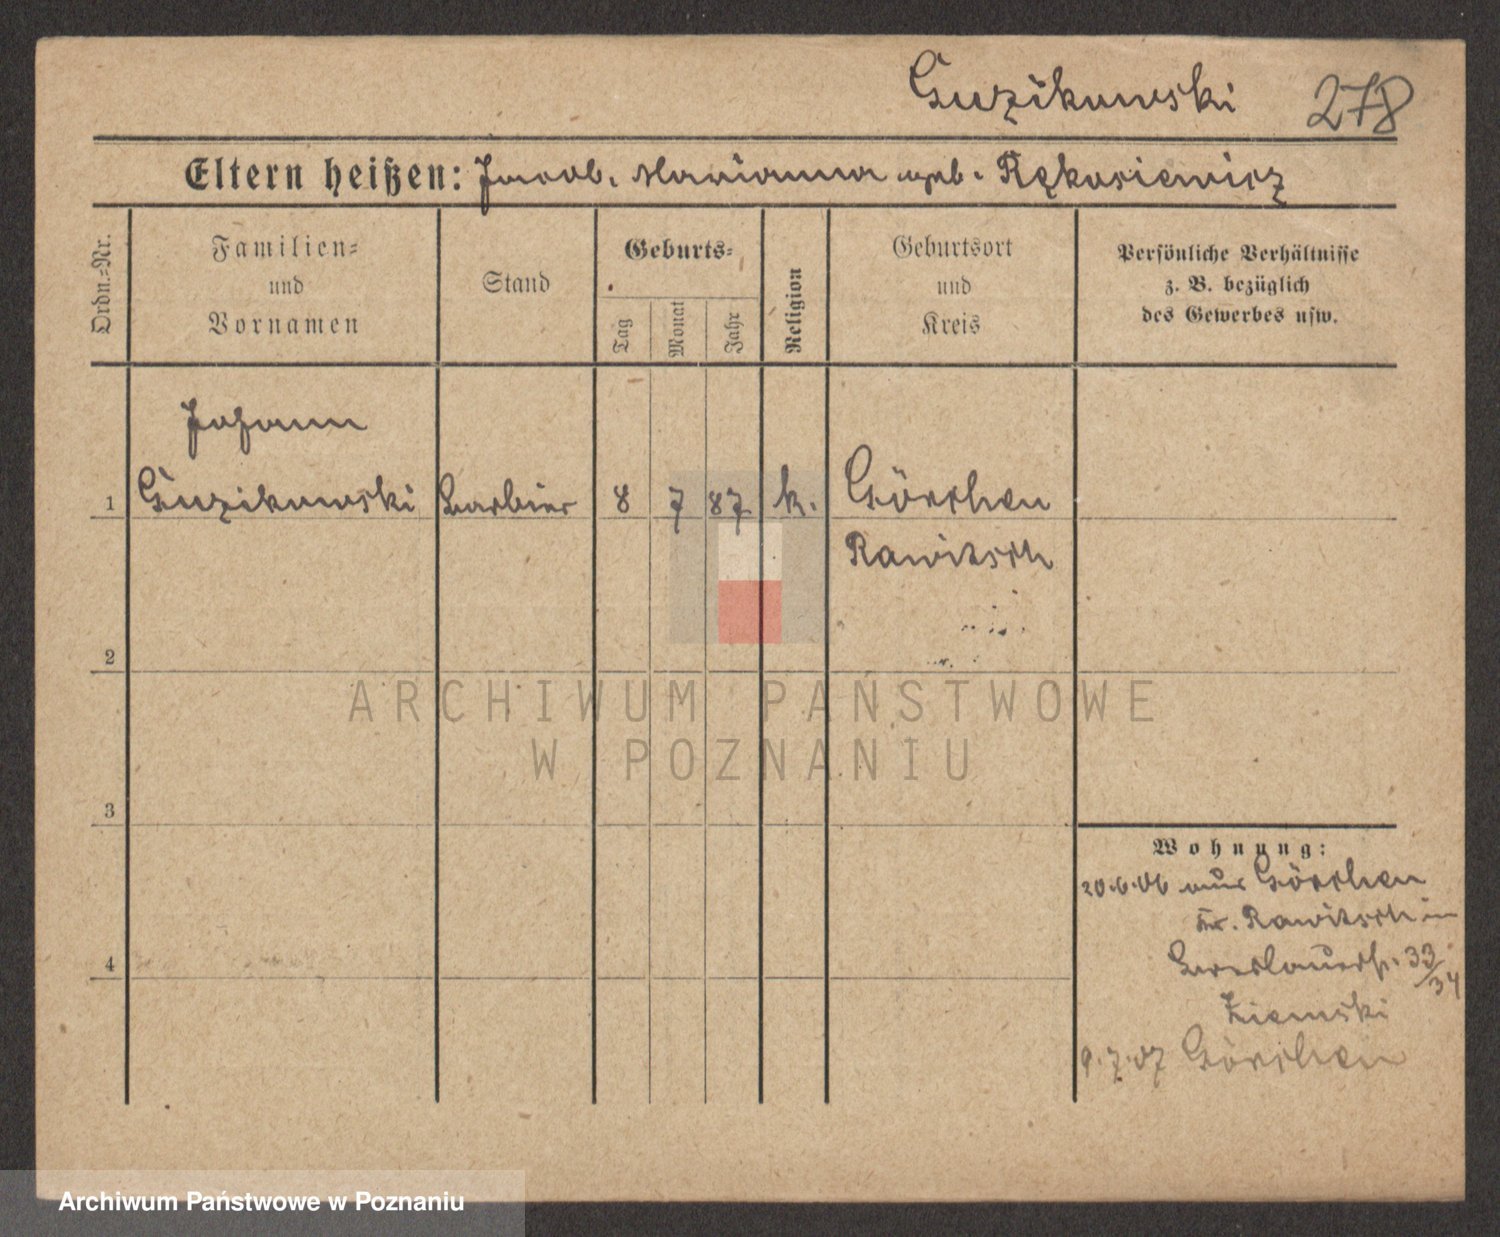 Guzikowski 278
Eltern heißen: Jacob. Marianna geb. Rękosiewicz
Ordn.-Nr.
Familien-
und
Vornamen
Stand
Geburts-
Tag
Monat
Jahr
Religion
Geburtsort
und
Kreis
Persönliche Verhältnisse
z. B. bezüglich
des Gewerbes usw.
Johann
1 Guzikowski Barbier 8 7 87 k. Görchen
Rawitsch
2
ARCHIWUM PAŃSTWOWE
W POZNANIU
3
Wohnung:
20.6.06 aus Görchen
Kr. Rawitsch in
4
Breslauerstr. 33/34
Ziemski
9.7.07 Görchen
Archiwum Państwowe w Poznaniu